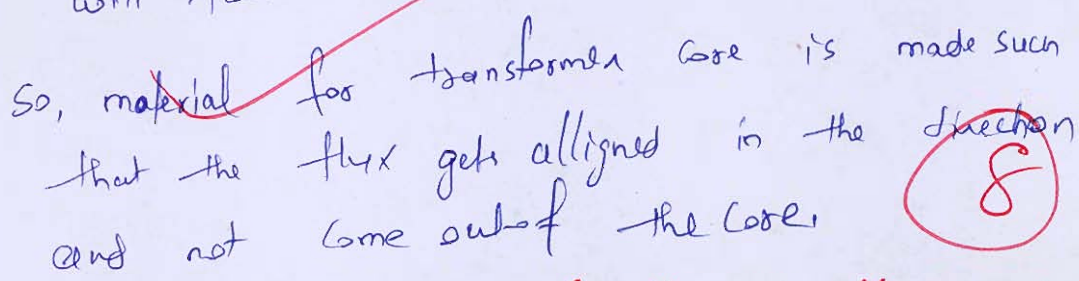 So, material for transformer core is made such
that the flux gets alligned in the direction
8
and not come out of the core.